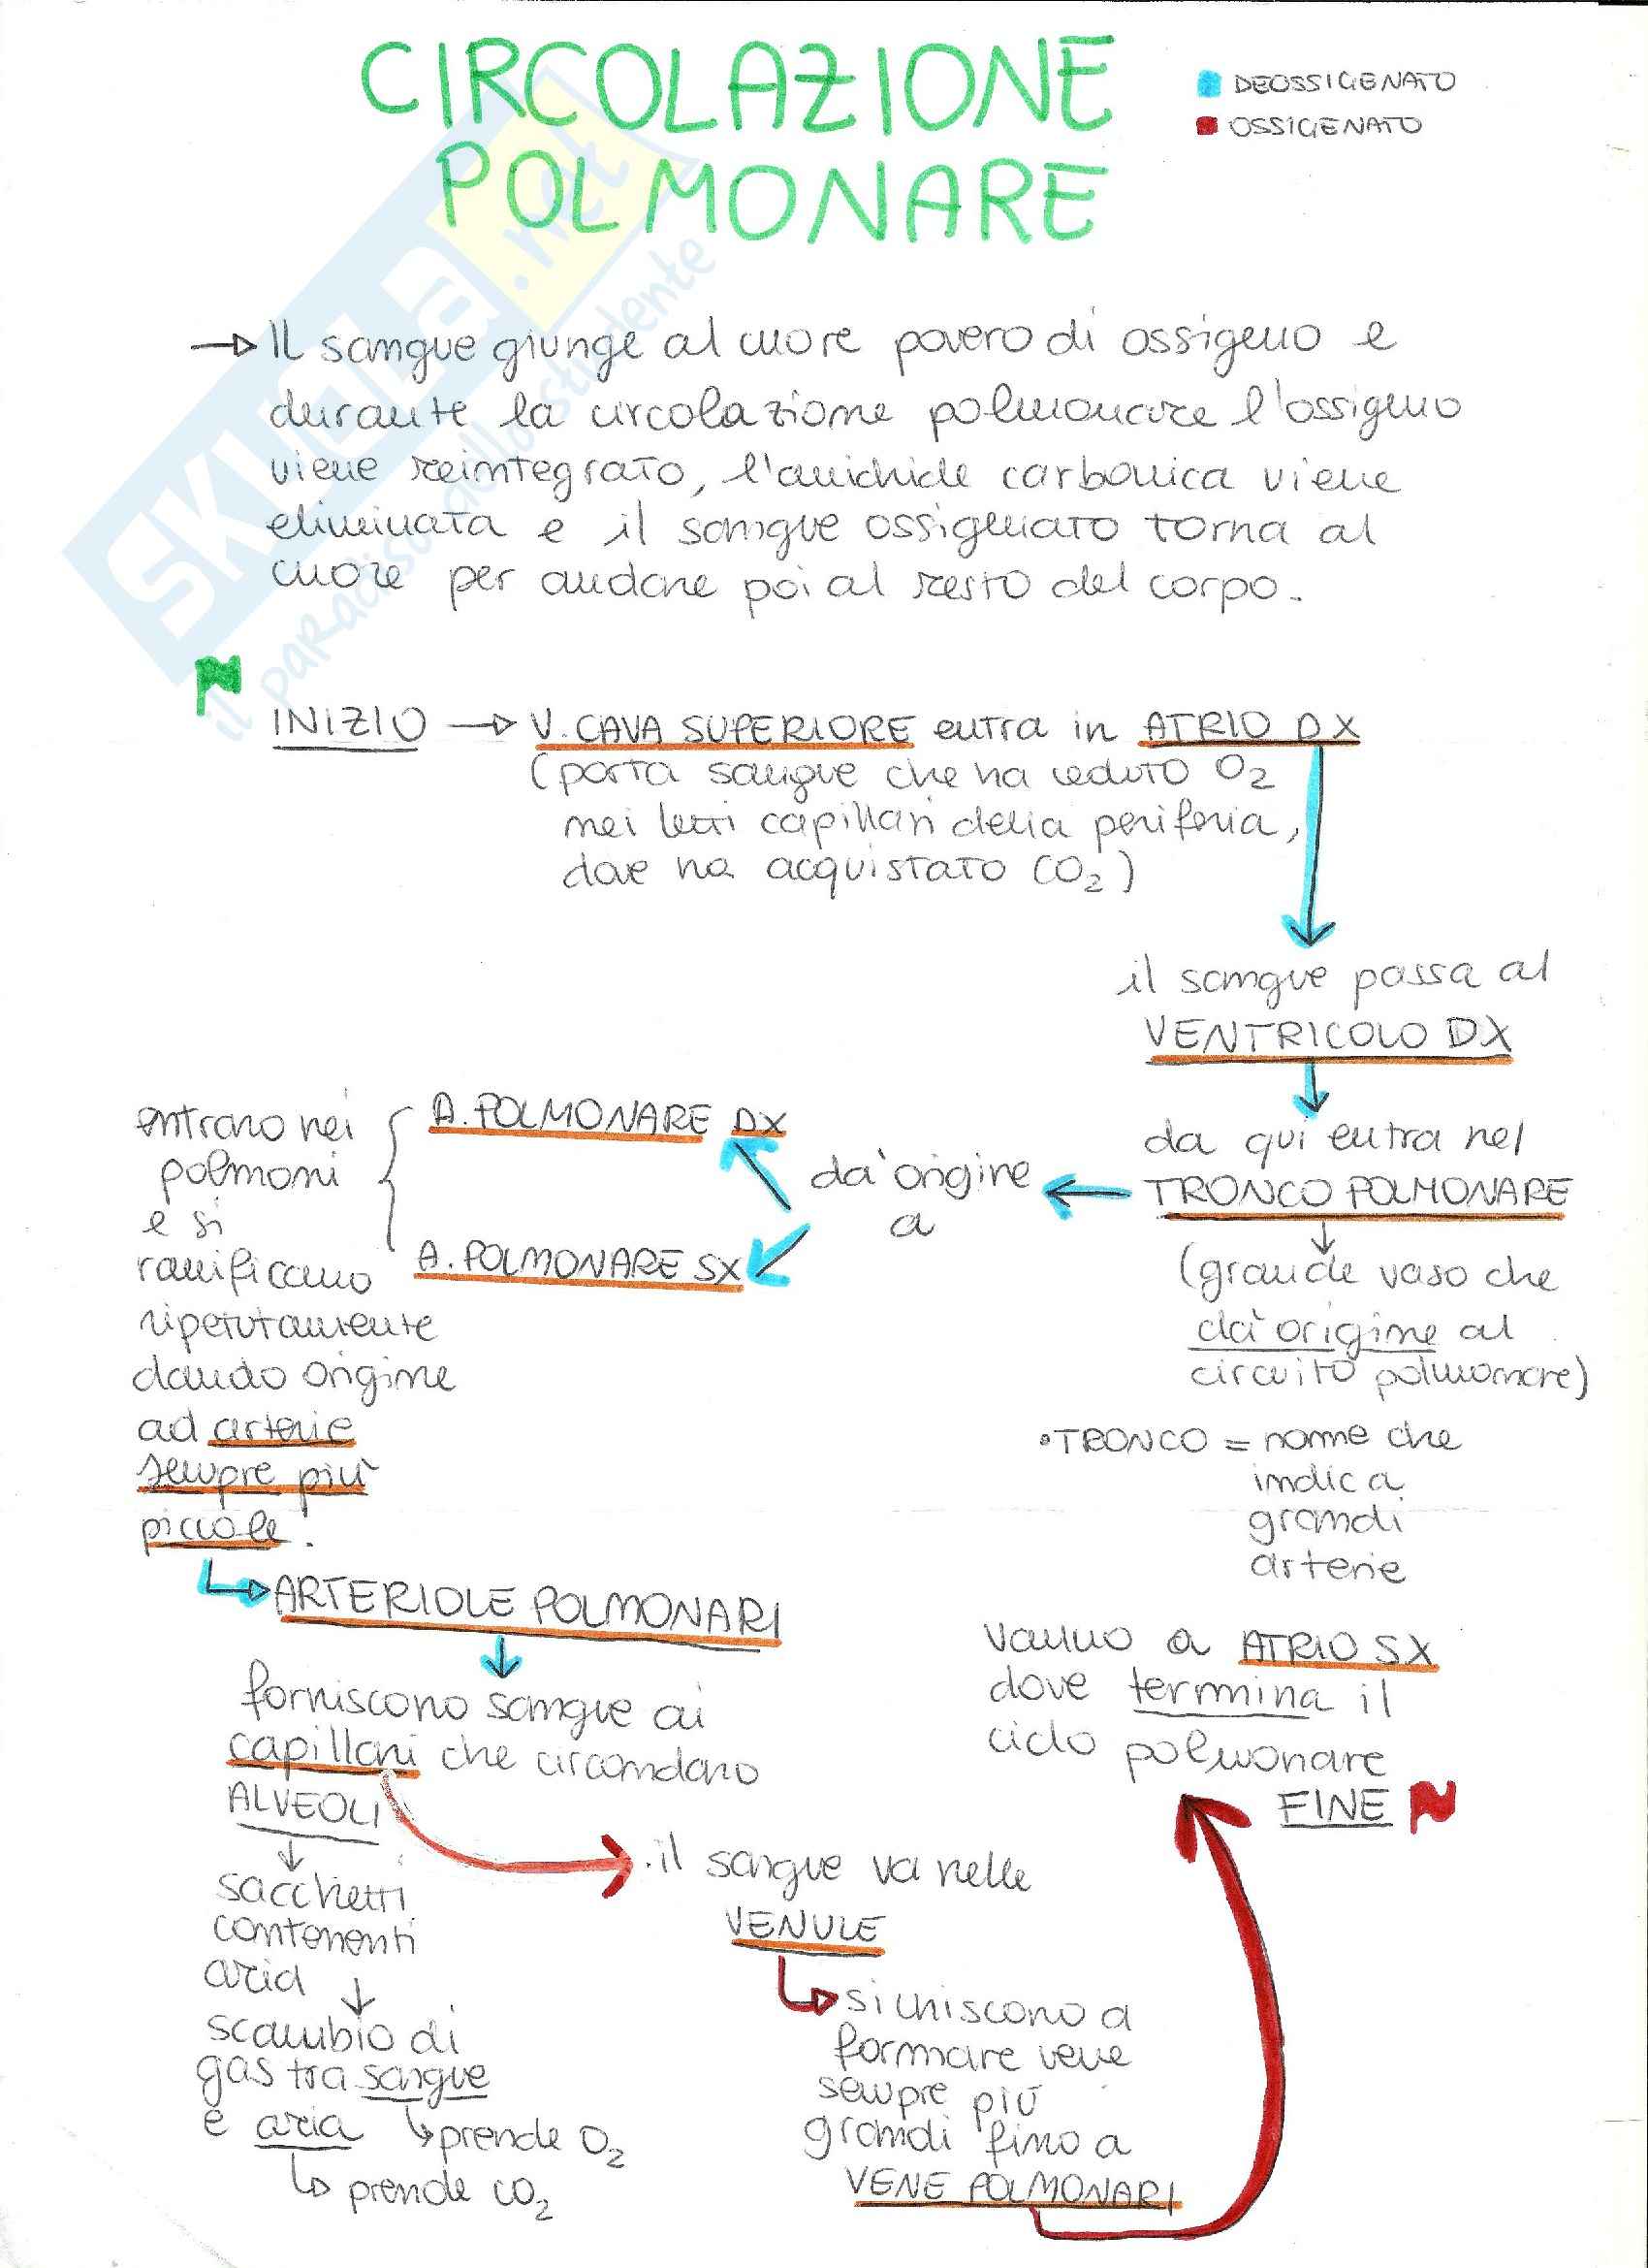 CIRCOLAZIONE
POLMONARE
DEOSSIGENATO
OSSIGENATO
SKUOLA.net
il paradiso dello studente
Il sangue giunge al cuore povero di ossigeno e
durante la circolazione polmonare l'ossigeno
viene reintegrato, l'anidride carbonica viene
eliminata e il sangue ossigenato torna al
cuore per andare poi al resto del corpo.
INIZIO → V. CAVA SUPERIORE entra in ATRIO DX
(porta sangue che ha ceduto O₂
nei letti capillari della periferia,
dove ha acquistato CO₂)
il sangue passa al
VENTRICOLO DX
da qui entra nel
TRONCO POLMONARE
(grande vaso che
dà origine al
circuito polmonare)
•TRONCO = nome che
indica
grandi
arterie
dà origine
a
A. POLMONARE DX
A. POLMONARE SX
entrano nei
polmoni
e si
ramificano
ripetutamente
dando origine
ad arterie
sempre più
piccole.
ARTERIOLE POLMONARI
forniscono sangue ai
capillari che circondano
ALVEOLI
sacchetti
contenenti
aria
scambio di
gas tra sangue
e aria
prende O₂
prende CO₂
il sangue va nelle
VENULE
si uniscono a
formare vene
sempre più
grandi fino a
VENE POLMONARI
vanno a ATRIO SX
dove termina il
ciclo polmonare
FINE